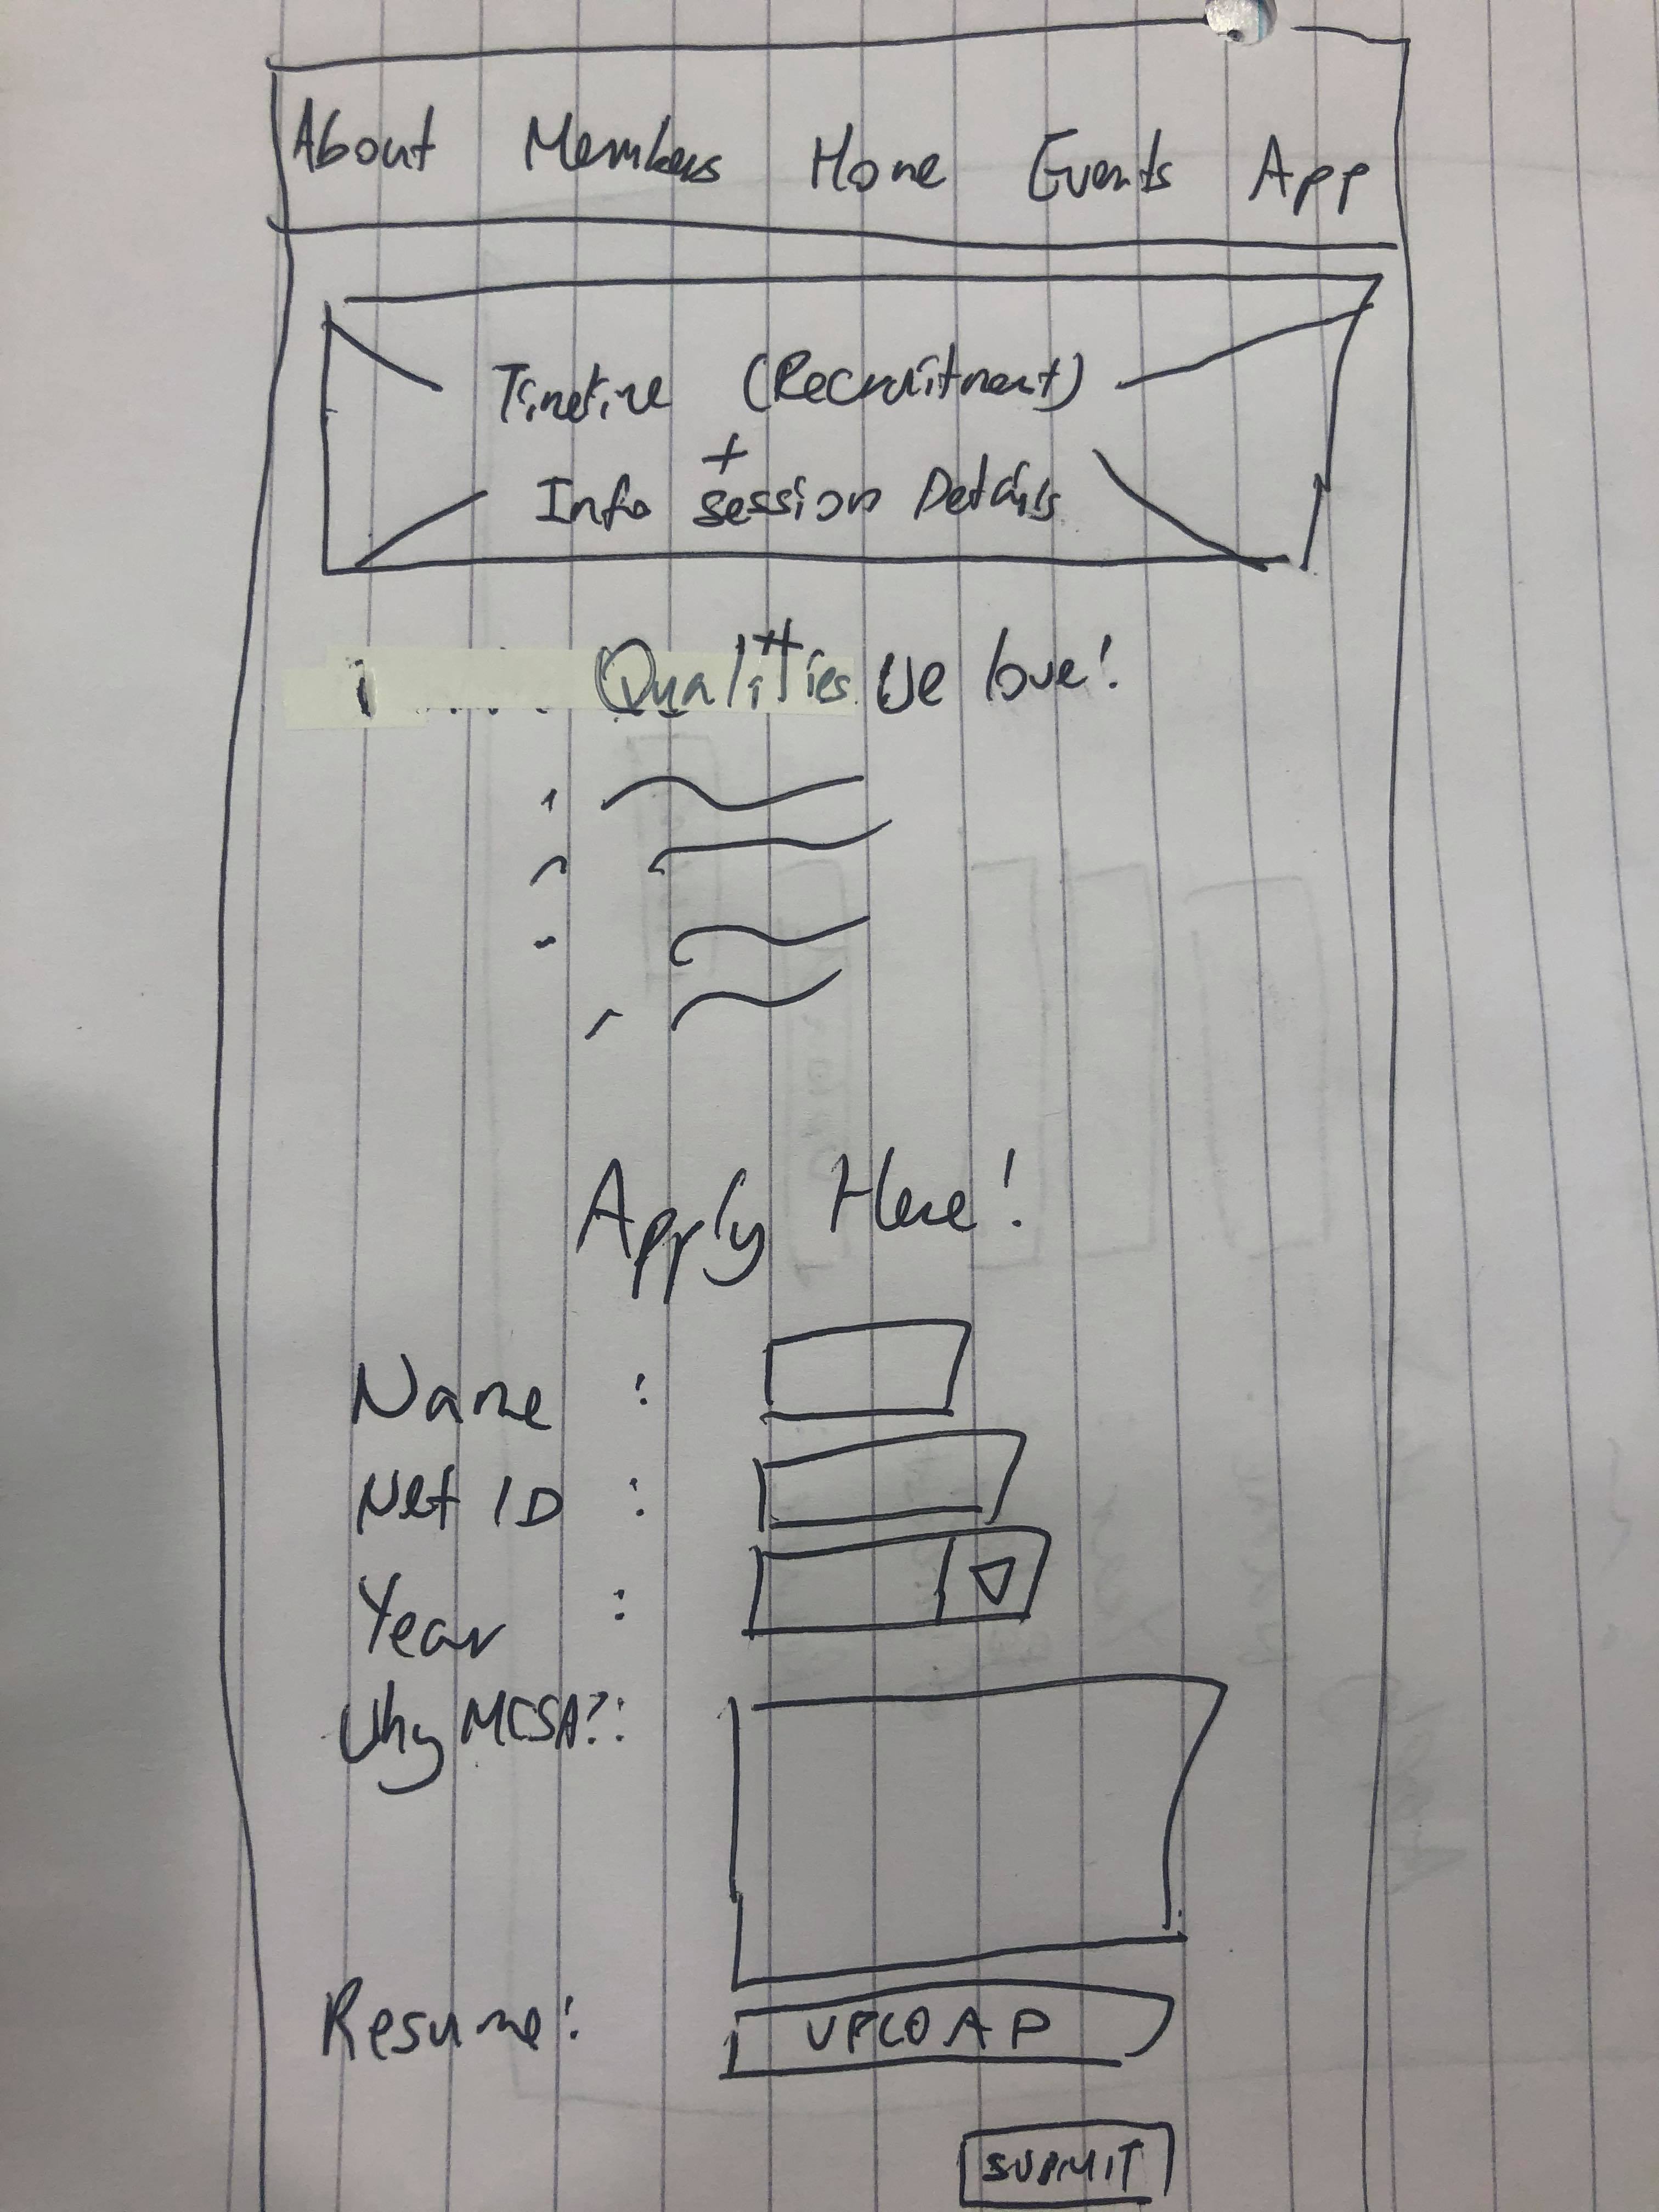 About Members Home Events App
Timeline (Recruitment)
+
Info session Details
Qualities We love!
Apply Here!
Name :
Net ID :
Year :
Why MCSA?:
Resume: UPLOAD
SUBMIT